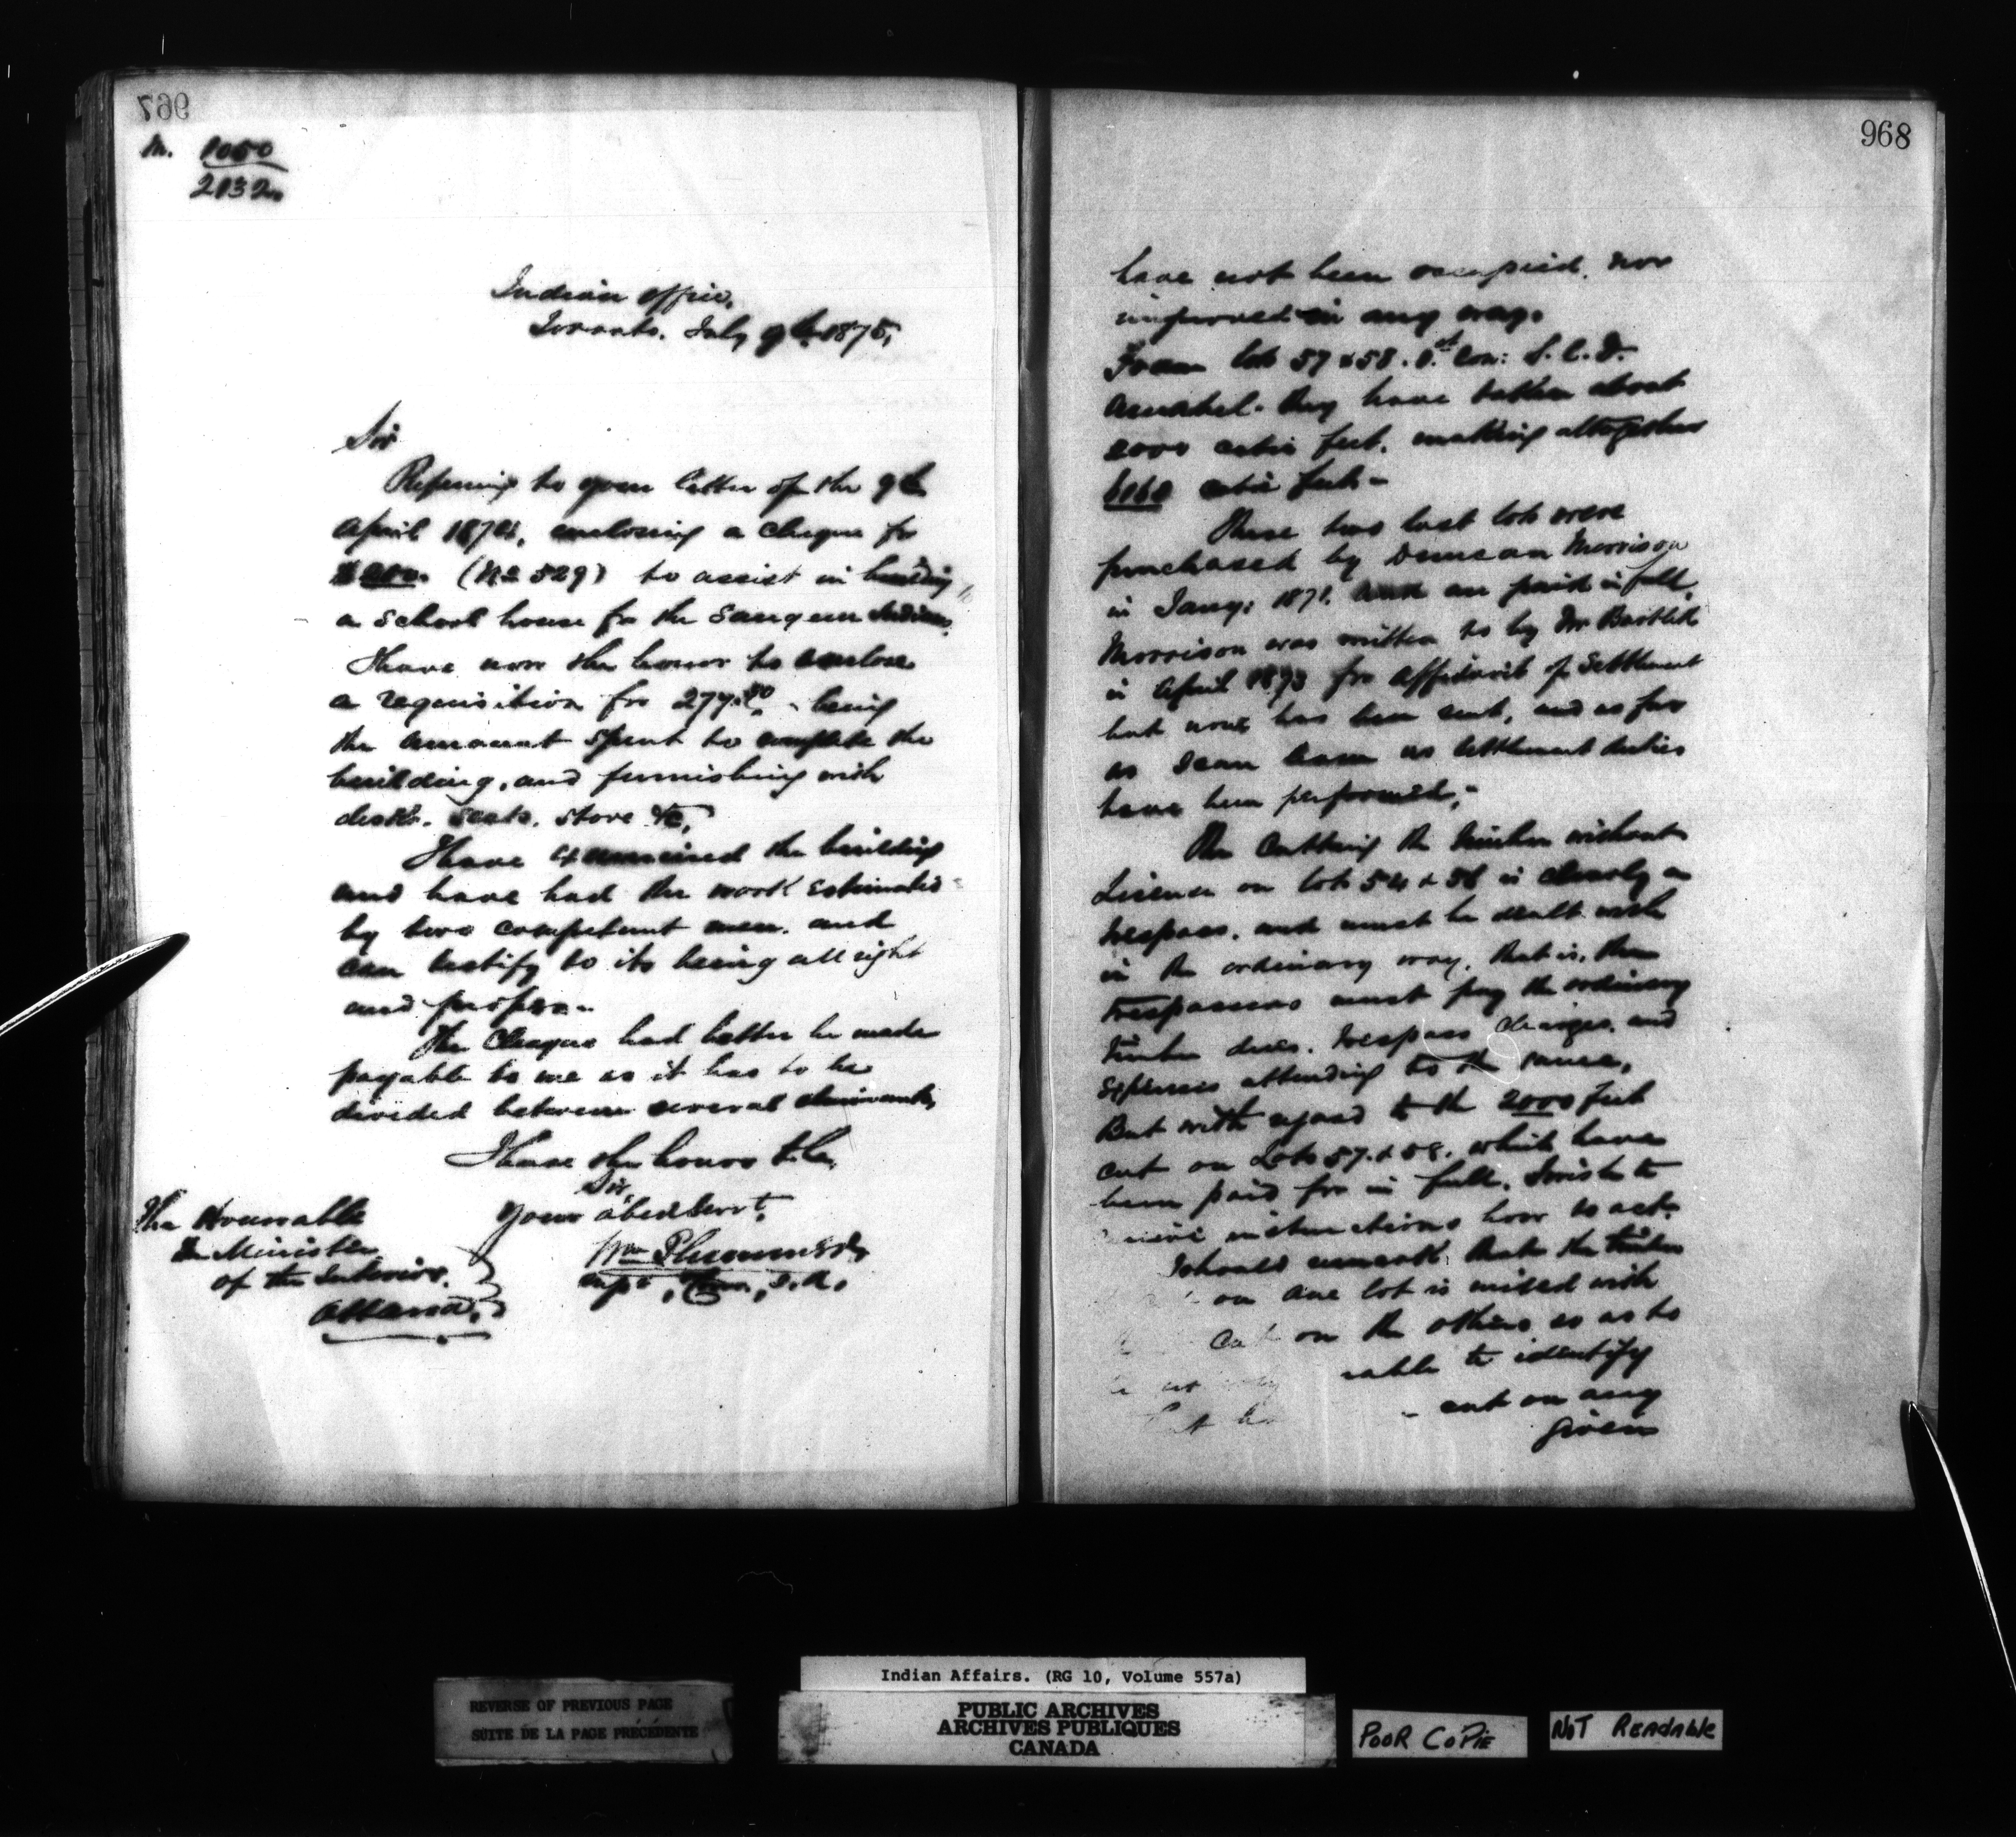 967
M. 1050
2132
Indian Office,
Toronto. July 9th 1875,
Sir
Referring to your letter of the 9th
April 1874, enclosing a cheque for
(No 529) to assist in building
a School house for the Saugeen Indians.
I have now the honor to enclose
a requisition for 277. being
the amount Spent to complete the
building, and furnishing with
desks. Seats. Stove &c,
I have examined the building
and have had the work Estimated
by two competent men. and
can testify to its being all right
and proper.-
The Cheque had better be made
payable to me as it has to be
divided between several claimants,
I have the honor to be,
Sir,
Your obed Servt,
Wm Plummer
Supt, Com, I. A.
The Honorable
The Minister
of the Interior.
Ottawa,
968
have not been occupied. nor
improved in any way.
From lots 57 & 58. 1st Con: S. C. D.
Amabel. they have taken about
2000 cubic feet. making altogether
cubic feet-
These two last lots were
purchased by Duncan Morrison
in Jany: 1871. and are paid in full.
Morrison was written to by Mr Bartlett
in April 1873 for affidavit of Settlement
but none has been sent, and as far
as I can learn no Settlement duties
have been performed,-
The Cutting the timber without
License on lots 54 & 56 is clearly a
trespass. and must be dealt with
in the ordinary way. that is. the
trespassers must pay the ordinary
timber dues. trespass charges. and
Expenses attending to the same,
But with regard to the 2000 feet
cut on Lots 57. & 58. which have
been paid for in full. I wish to
instructions how to act.
I should remark that the timber
on one lot is mixed with
cut on the others so as to
to identify
cut on any
given
Indian Affairs. (RG 10, Volume 557a)
REVERSE OF PREVIOUS PAGE
SUITE DE LA PAGE PRÉCÉDENTE
PUBLIC ARCHIVES
ARCHIVES PUBLIQUES
CANADA
POOR COPIE
NOT READABLE